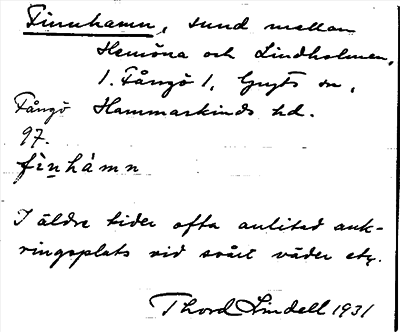 Finnhamn, sund mellan
Hemöna och Lindholmen,
1. Fångö 1, Gryts sn,
Fångö Hammarkinds hd.
97.
fìṉhámn
I äldre tider ofta anlitad ank-
ringsplats vid svårt väder etc.
Thord Lindell 1931